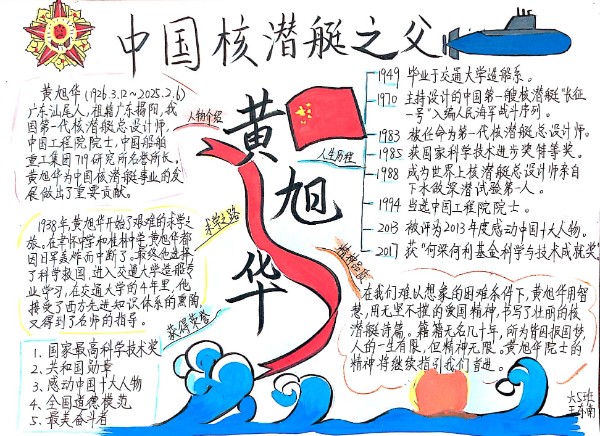 中国核潜艇之父
黄旭华
人物介绍
黄旭华(1926.3.12～2025.2.6)
广东汕尾人,祖籍广东揭阳,我
国第一代核潜艇总设计师,
中国工程院院士,中国船舶
重工集团719研究所名誉所长,
黄旭华为中国核潜艇事业的发
展做出了重要贡献。
求学之路
1938年,黄旭华开始了艰难的求学之
旅。在聿怀中学和桂林中学,黄旭华都
因日军轰炸而中断了。最终他选择
了科学救国,进入交通大学造船专
业学习,在交通大学的4年里,他
接受了西方先进知识体系的熏陶,
又得到了名师的指导。
获得荣誉
1、国家最高科学技术奖
2、共和国勋章
3、感动中国十大人物
4、全国道德模范
5、最美奋斗者
人生历程
1949 毕业于交通大学造船系。
1970 主持设计的中国第一艘核潜艇“长征
一号”入编人民海军战斗序列。
1983 被任命为第一代核潜艇总设计师。
1985 获国家科学技术进步奖特等奖。
1988 成为世界上核潜艇总设计师亲自
下水做深潜试验第一人。
1994 当选中国工程院院士。
2013 被评为2013年度感动中国十大人物。
2017 获“何梁何利基金科学与技术成就奖”
精神品质
在我们难以想象的困难条件下,黄旭华用智
慧,用无坚不摧的爱国精神,书写了壮丽的核
潜艇诗篇。籍籍无名几十年,所为皆因报国梦,
人的一生有限,但精神无限。黄旭华院士的
精神将继续指引我们奋进。
六5班